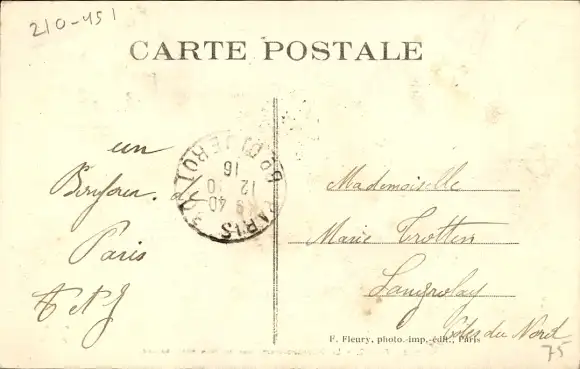 210-451
CARTE POSTALE
un
Bonjour. de
Paris
Mademoiselle
Marie Trotten
Langrolay
Côtes du Nord
F. Fleury, photo.-imp.-édit., Paris
75
PARIS
19 40
12 10
16